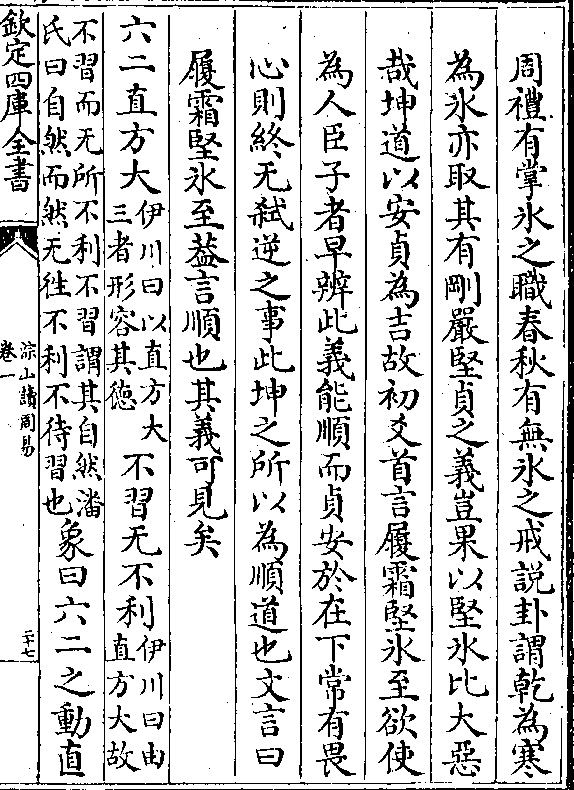 周禮有掌氷之職春秋有無氷之戒説卦謂乾為寒
為氷亦取其有剛嚴堅貞之義豈果以堅氷比大惡
哉坤道以安貞為吉故初爻首言履霜堅氷至欲使
為人臣子者早辨此義能順而貞安於在下常有畏
心則終无弑逆之事此坤之所以為順道也文言曰
履霜堅氷至葢言順也其義可見矣
六二直方大伊川曰以直方大三者形容其徳不習无不利伊川曰由直方大故
不習而无所不利不習謂其自然潘氏曰自然而然无徃不利不待習也象曰六二之動直
欽定四庫全書
淙山讀周易
卷一
二十七